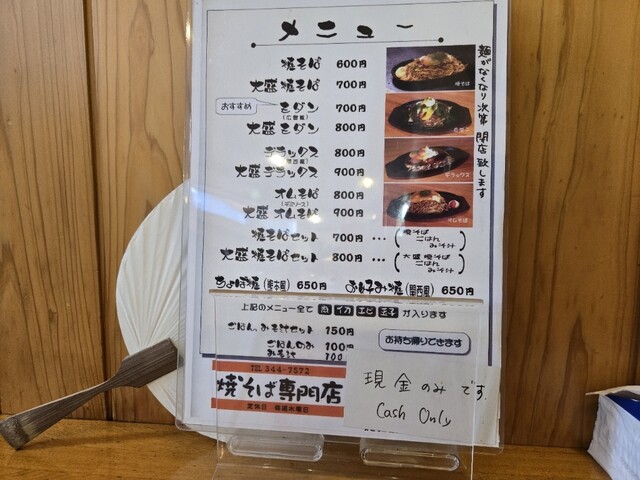 メニュー
焼そば 600円
大盛 焼そば 700円
おすすめ
モダン 700円
(広島風)
大盛 モダン 800円
デラックス 800円
(関西風)
大盛 デラックス 900円
オムそば 800円
大盛 オムそば 900円
焼そばセット 700円 … 焼そば ごはん みそ汁
大盛 焼そばセット 800円 … 大盛 焼そば ごはん みそ汁
650円
お好み焼(関西風) 650円
上記のメニュー全て 肉 イカ エビ 玉子 が入ります
ごはん、みそ汁セット 150円
ごはんのみ 100円
みそ汁 100
お持ち帰りできます
麺がなくなり次第 閉店致します
焼そば
デラックス
オムそば
TEL 344-7572
焼そば専門店
定休日 毎週水曜日
現金のみです
Cash Only